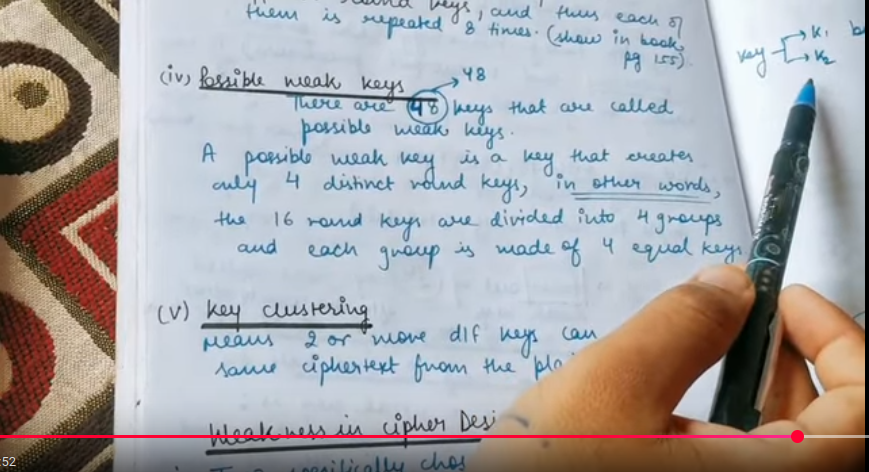 round keys, and thus each of
them is repeated 8 times. (show in book
pg 155).
key → K1
→ K2
(iv) Possible weak keys → 48
There are 48 keys that are called
possible weak keys.
A possible weak key is a key that creates
only 4 distinct round keys, in other words,
the 16 round keys are divided into 4 groups
and each group is made of 4 equal keys
(v) key clustering
Means 2 or more dif keys can
same ciphertext from the pla
Weakness in cipher Desi
chos
:52